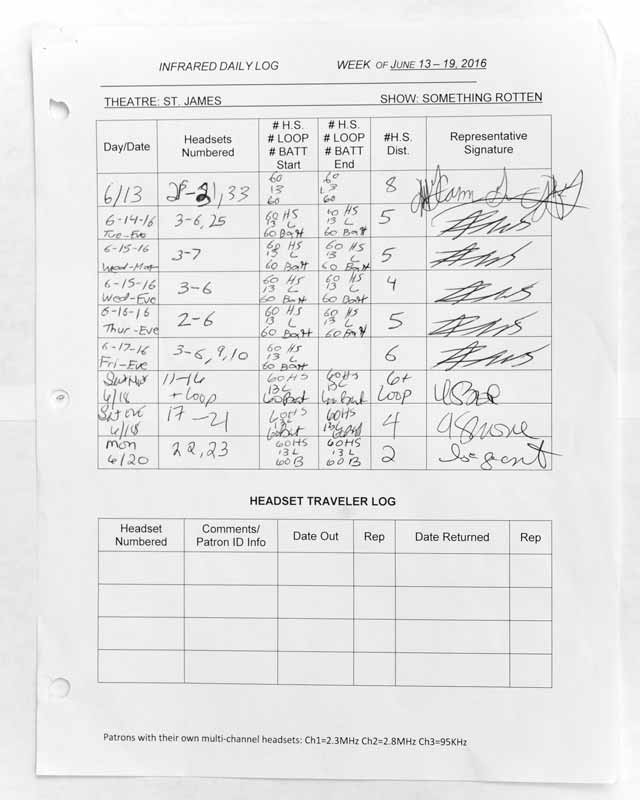 INFRARED DAILY LOG WEEK OF JUNE 13 – 19, 2016
THEATRE: ST. JAMES SHOW: SOMETHING ROTTEN
Day/Date Headsets Numbered # H.S. # LOOP # BATT Start # H.S. # LOOP # BATT End #H.S. Dist. Representative Signature
6/13 , 33 60 13 60 60 13 60 8
6-14-16 Tue-Eve 3-6, 25 60 HS 13 L 60 Batt HS 13 L 60 Batt 5
6-15-16 Wed-Mat 3-7 60 HS 13 L 60 Batt 60 HS 13 L 60 Batt 5
6-15-16 Wed-Eve 3-6 60 HS 13 L 60 Batt 60 HS 13 L 60 Batt 4
6-16-16 Thur-Eve 2-6 60 HS 13 L 60 Batt 60 HS 13 L 60 Batt 5
6-17-16 Fri-Eve 3-6, 9, 10 60 HS 13 L 60 Batt 6
Sat Mat 6/18 11-16 + loop 60 HS 13 L 60 Batt 60 HS 13 L 60 Batt 6+ loop
Sat eve 6/18 17-21 60 HS 13 L 60 Batt 60 HS 13 L 60 Batt 4
mon 6/20 22, 23 60 HS 13 L 60 B 60 HS 13 L 60 B 2
HEADSET TRAVELER LOG
Headset Numbered Comments/ Patron ID Info Date Out Rep Date Returned Rep
Patrons with their own multi-channel headsets: Ch1=2.3MHz Ch2=2.8MHz Ch3=95KHz